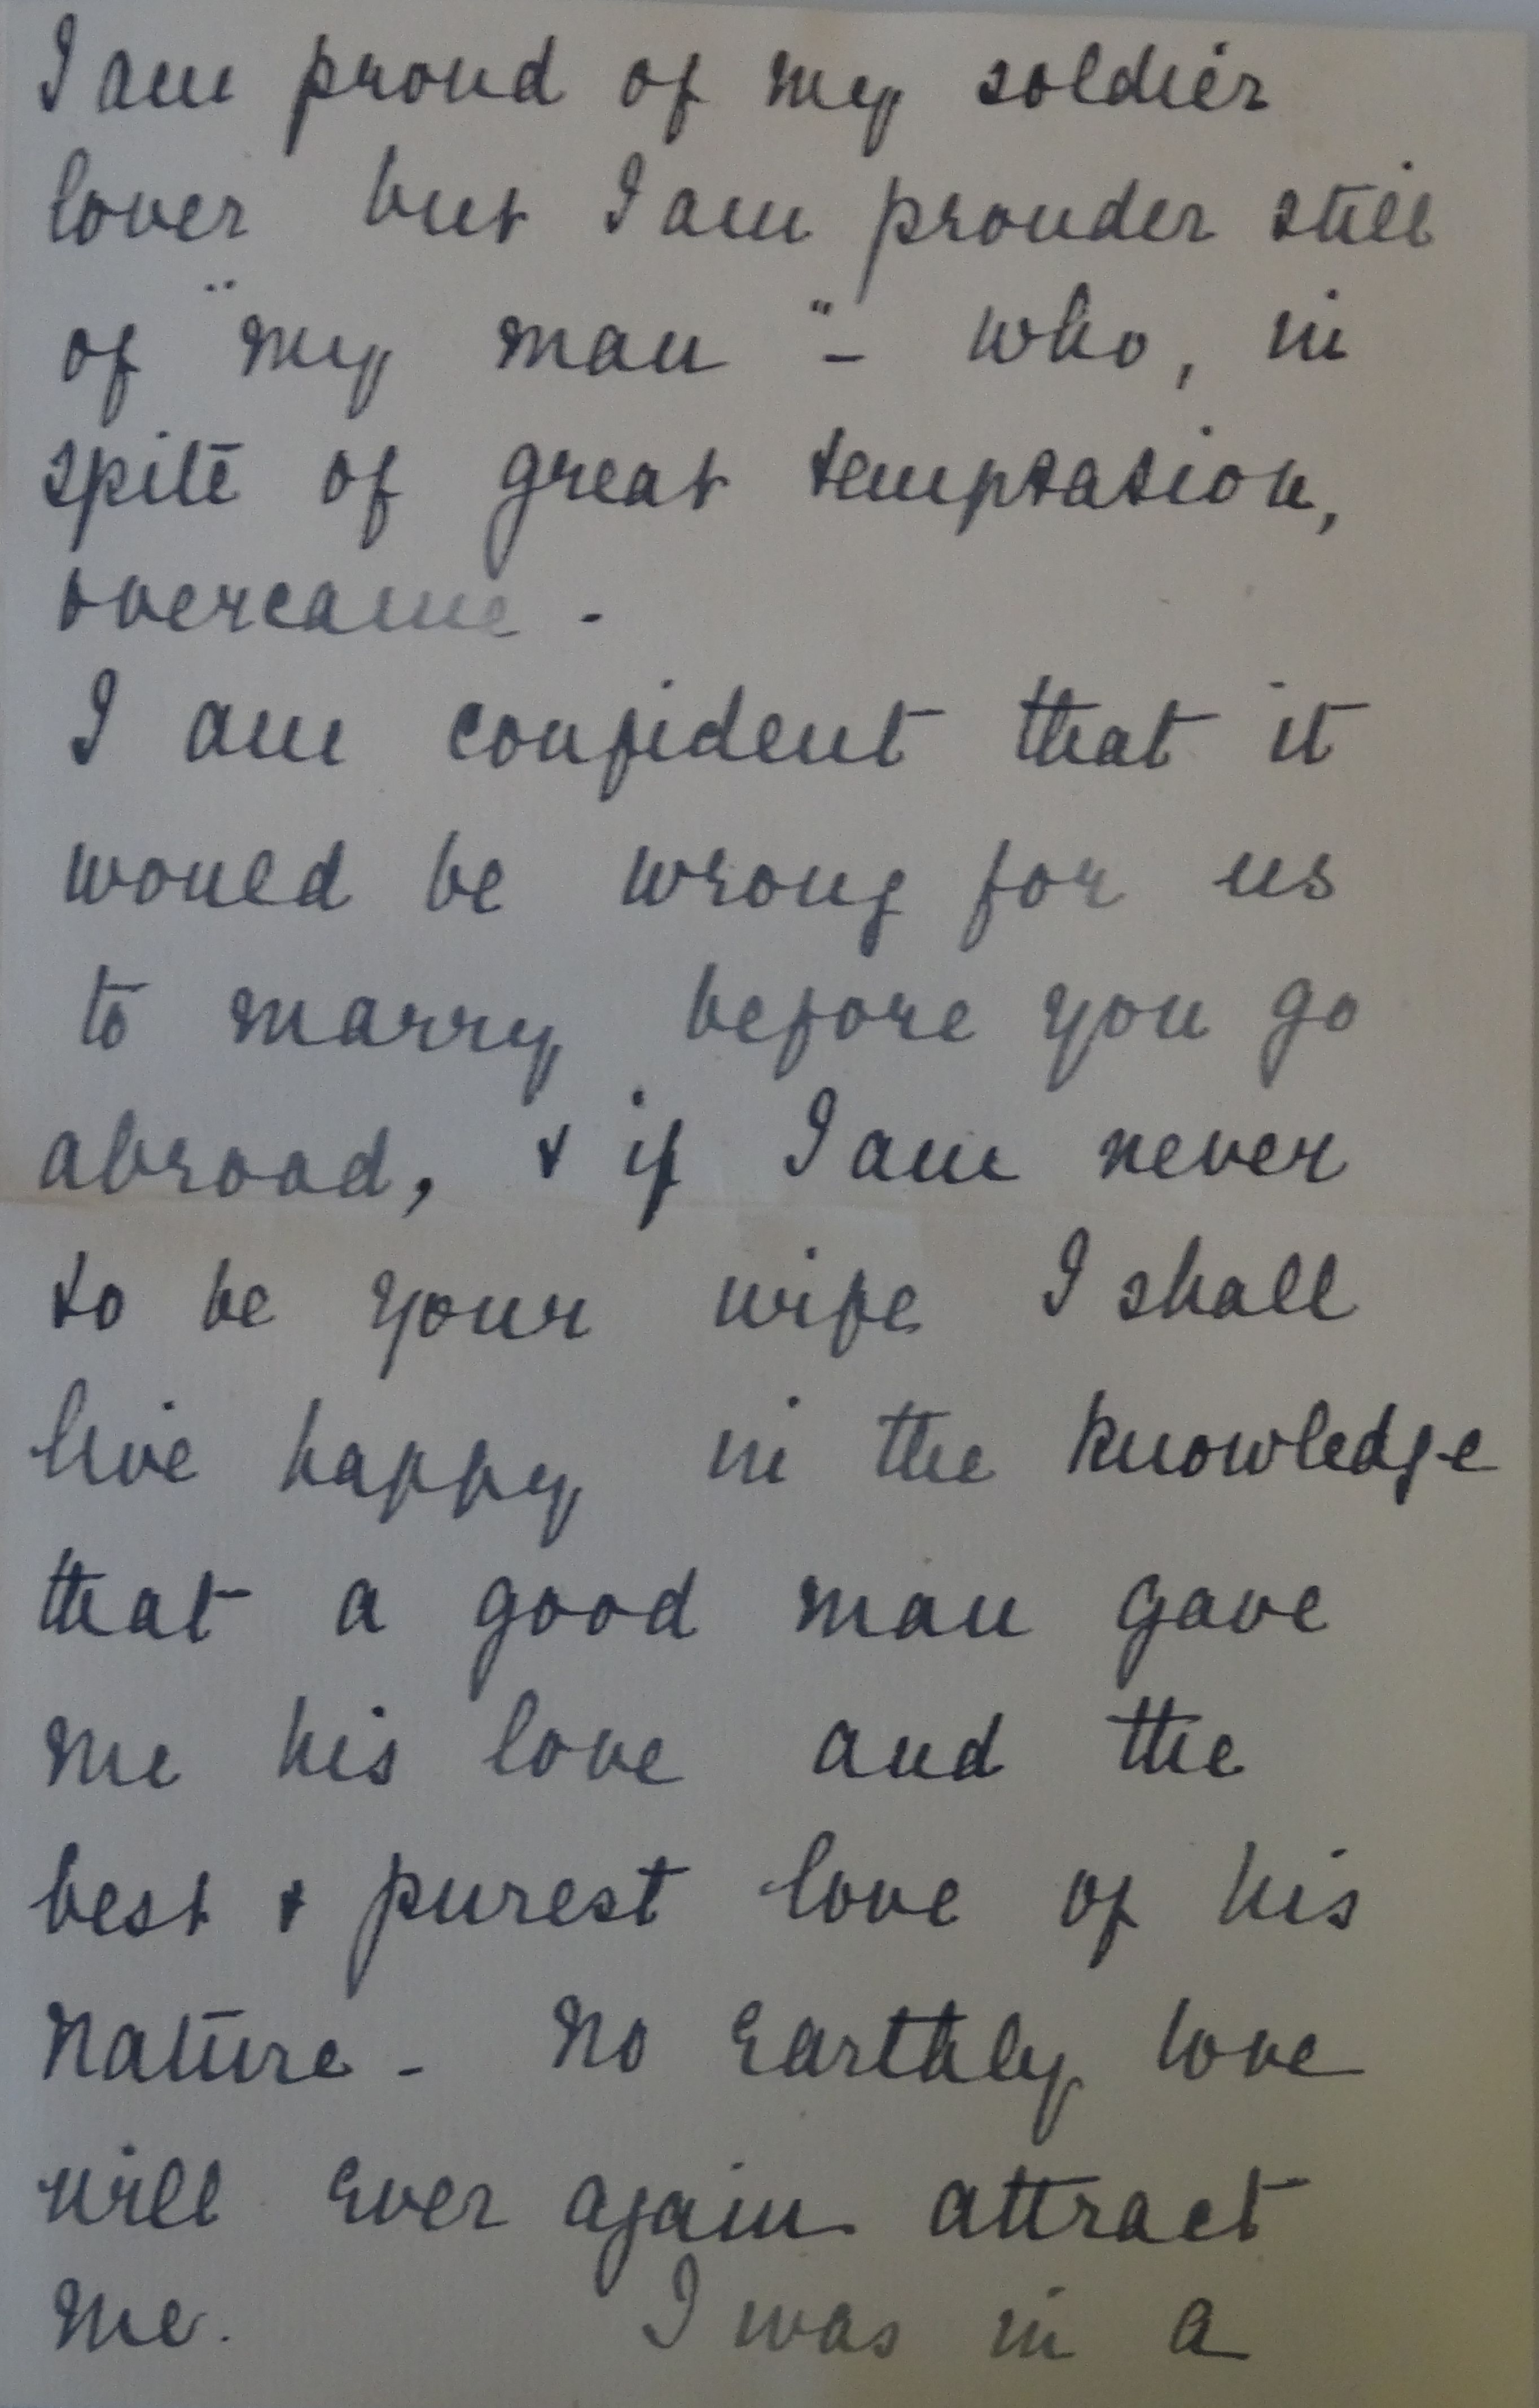 I am proud of my soldier
lover but I am prouder still
of "my man" - who, in
spite of great temptation,
overcame -
I am confident that it
would be wrong for us
to marry before you go
abroad, & if I am never
to be your wife I shall
live happy in the knowledge
that a good man gave
me his love and the
best & purest love of his
nature - no earthly love
will ever again attract
me. I was in a